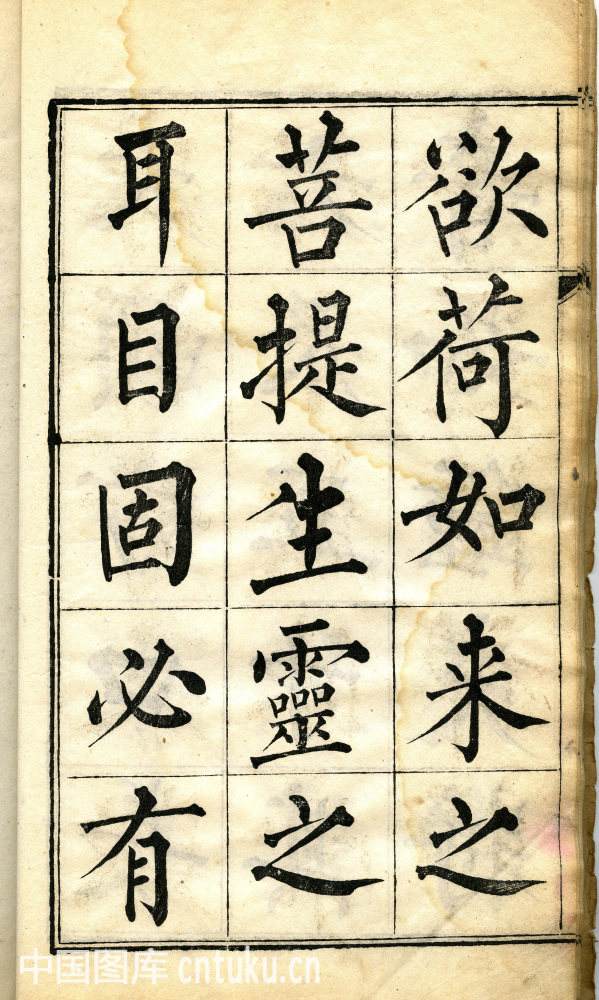 欲荷如来之
菩提生靈之
耳目固必有
中国图库 cntuku.cn